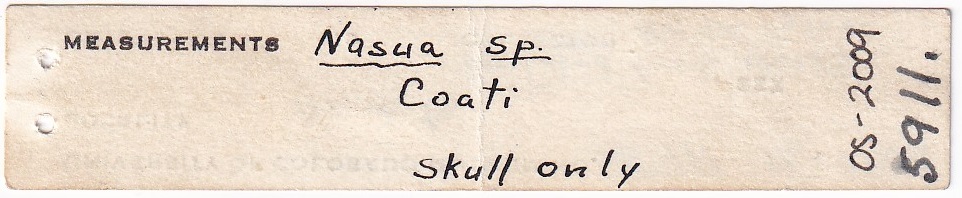 MEASUREMENTS Nasua sp.
Coati
Skull only
OS-2009
5911.